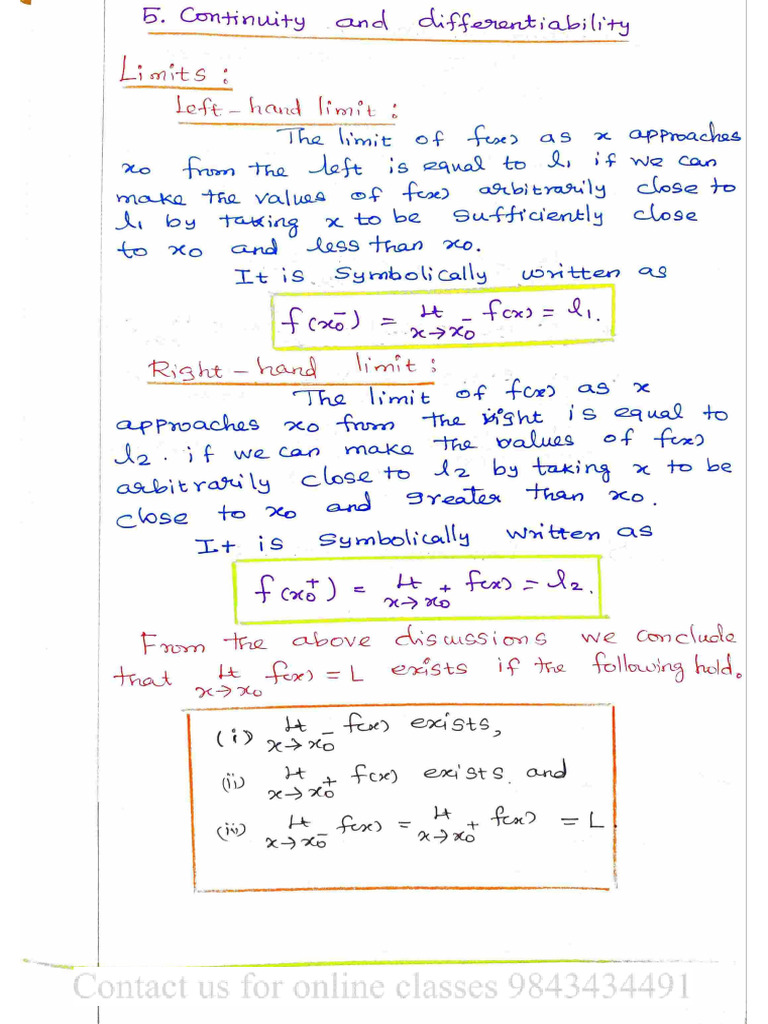 5. Continuity and differentiability
Limits:
Left-hand limit:
The limit of f(x) as x approaches
x0 from the left is equal to l1 if we can
make the values of f(x) arbitrarily close to
l1 by taking x to be sufficiently close
to x0 and less than x0.
It is symbolically written as
f(x0⁻) = lt x→x0⁻ f(x) = l1.
Right-hand limit:
The limit of f(x) as x
approaches x0 from the right is equal to
l2. if we can make the values of f(x)
arbitrarily close to l2 by taking x to be
close to x0 and greater than x0.
It is symbolically written as
f(x0⁺) = lt x→x0⁺ f(x) = l2.
From the above discussions we conclude
that lt x→x0 f(x) = L exists if the following hold.
(i) lt x→x0⁻ f(x) exists,
(ii) lt x→x0⁺ f(x) exists and
(iii) lt x→x0⁻ f(x) = lt x→x0⁺ f(x) = L.
Contact us for online classes 9843434491